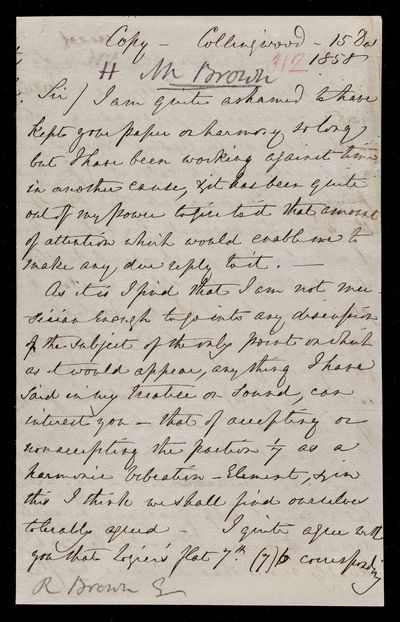 Copy - Collingwood - 15 Dec
1858
H Mr Brown 312
Sir / I am quite ashamed to have
kept your paper on harmony so long
but I have been working against time
in another cause, & it has been quite
out of my power to give to it that amount
of attention which would enable me to
make any due reply to it. —
As it is I find that I am not mu-
sician enough to go into any discussion
of the subject of the only point on which
as it would appear, any thing I have
said in my Treatise on Sound, can
interest you — that of accepting or
nonaccepting the fraction 1/7 as a
harmonic vibration - Element, & in
this I think we shall find ourselves
tolerably agreed - I quite agree with
you that Logier's flat 7th (7)b corresponding
R Brown Esq